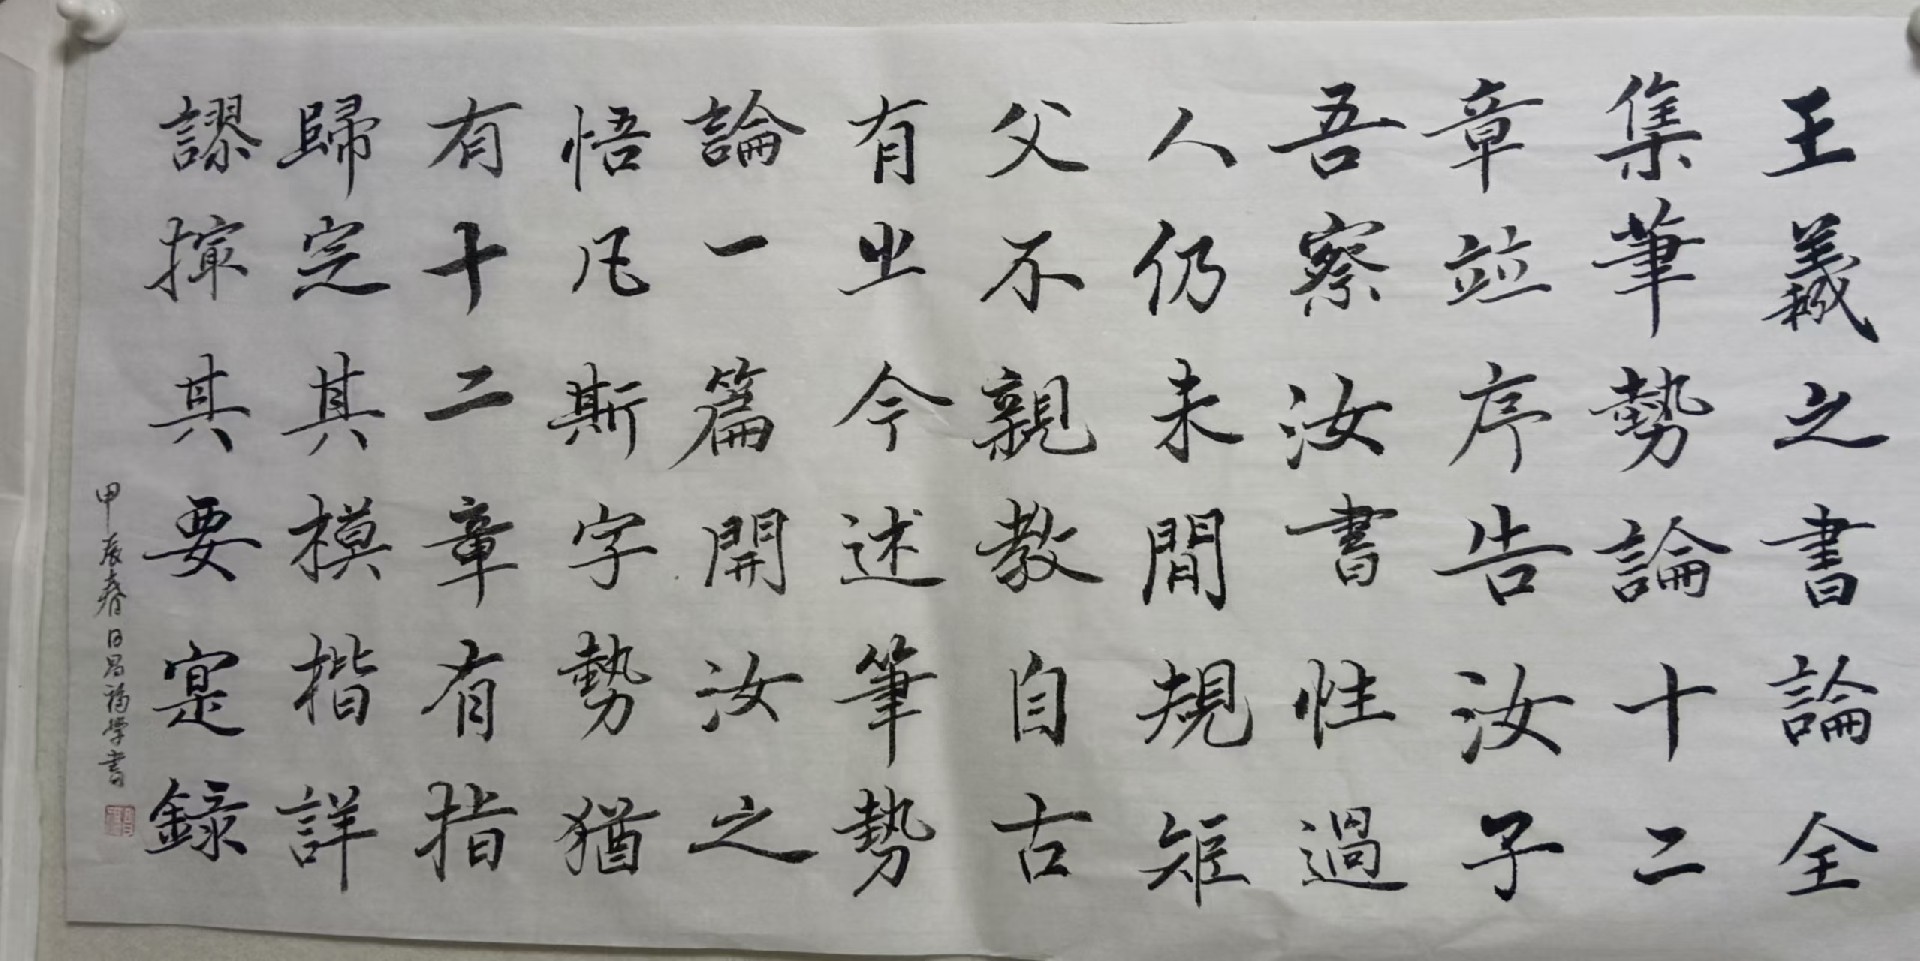 王羲之書論全
集筆勢論十二
章並序告汝子
吾察汝書性過
人仍未閒規矩
父不親教自古
有之今述筆勢
論一篇開汝之
悟凡斯字勢猶
有十二章章有指
歸定其模楷詳
謬撺其要寔錄
甲辰春日昌福學書